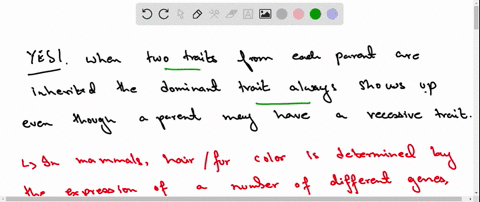 YES! When two traits from each parent are
inherited the dominant trait always shows up
even though a parent may have a recessive trait.
↳ In mammals, hair/fur color is determined by
the expression of a number of different genes,